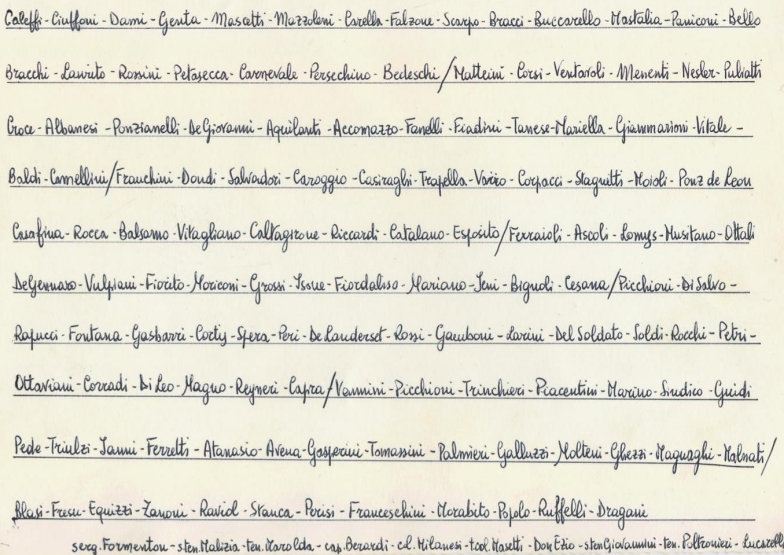 Caleffi - Ciuffoni - Dami - Genta - Mascetti - Mazzoleni - Carella - Falzone - Scarpo - Bracci - Buccarello - Mastalia - Paniconi - Bello
Bracchi - Laurito - Rossini - Petasecca - Carnevale - Persechino - Bedeschi / Matteini - Corsi - Ventaroli - Menenti - Nesler - Puliatti
Croce - Albanesi - Ponzianelli - De Giovanni - Aquilanti - Accomazzo - Fanelli - Fiadini - Tanese - Mariella - Giammarioni - Vitale -
Baldi - Camellini / Franchini - Dondi - Salvadori - Caroggio - Casiraghi - Trapella - Varizo - Corpacci - Stagnitti - Moioli - Ponz de Leon
Casafina - Rocca - Balsamo - Vitagliano - Caltagirone - Riccardi - Catalano - Esposito / Ferraioli - Ascoli - Lomys - Musitano - Ottali
De Gennaro - Vulpiani - Fiorito - Moriconi - Grossi - Issue - Fiordaliso - Mariano - Jeni - Bignoli - Cesana / Picchioni - Di Salvo -
Rapucci - Fontana - Gasbarri - Corty - Sfera - Peri - De Landerset - Rossi - Gamboni - Larini - Del Soldato - Soldi - Rocchi - Petri -
Ottaviani - Corradi - Di Leo - Magno - Reyneri - Capra / Vannini - Picchioni - Trinchieri - Piacentini - Marino - Sindico - Guidi
Pede - Triulzi - Ianni - Ferretti - Atanasio - Avena - Gasperini - Tomassini - Palmieri - Galluzzi - Molteni - Ghezzi - Magnaghi - Malnati /
Blasi - Fresu - Equizzi - Zanoni - Raviol - Stanca - Perisi - Franceschini - Morabito - Popolo - Ruffelli - Dragani
serg. Formenton - sten. Malizia - ten. Marolda - cap. Berardi - c.l. Milanesi - t.col. Masetti - Don Ezio - sten Giovannini - ten. Poltronieri - Lucarelli